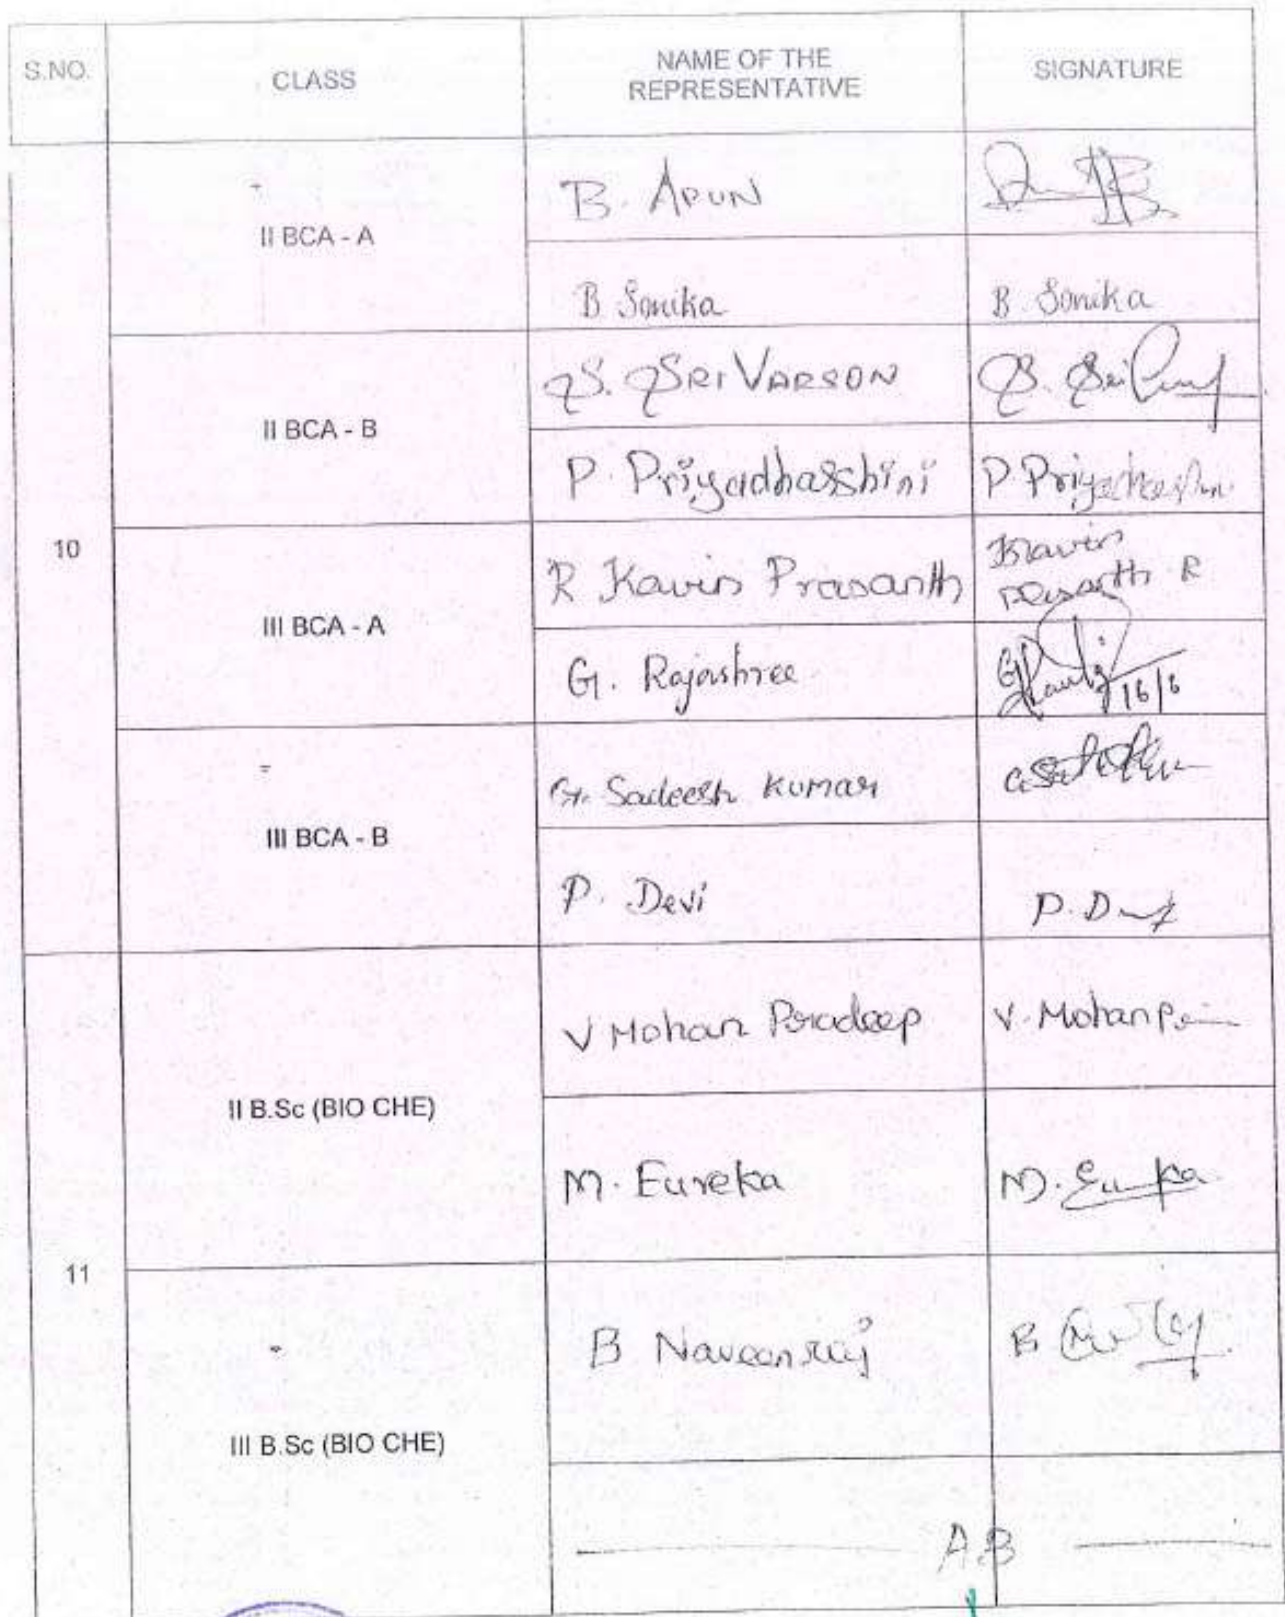 S.NO.
CLASS
NAME OF THE
REPRESENTATIVE
SIGNATURE
10
II BCA - A
B. ARUN
B. Sonika
B. Sonika
II BCA - B
S. SRI VARSON
S. Sri
P. Priyadharshini
P. Priyadharshini
III BCA - A
R Kavin Prasanth
Kavin
Prasanth R
G. Rajashree
16/6
III BCA - B
G. Sadeesh Kumar
P. Devi
P. D
11
II B.Sc (BIO CHE)
V Mohan Pradeep
V. Mohan P
M. Eureka
M. Eureka
III B.Sc (BIO CHE)
B Naveenraj
B
AB